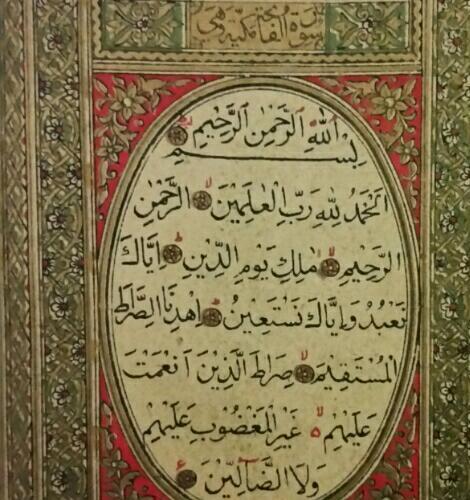 سورة الفاتحة مكية وهي
بِسْمِ اللّٰهِ الرَّحْمٰنِ الرَّحِيمِ
اَلْحَمْدُ لِلّٰهِ رَبِّ الْعٰلَمِينَ الرَّحْمٰنِ
الرَّحِيمِ مٰلِكِ يَوْمِ الدِّينِ اِيَّاكَ
نَعْبُدُ وَاِيَّاكَ نَسْتَعِينُ اِهْدِنَا الصِّرَاطَ
الْمُسْتَقِيمَ صِرَاطَ الَّذِينَ اَنْعَمْتَ
عَلَيْهِمْ غَيْرِ الْمَغْضُوبِ عَلَيْهِمْ
وَلَا الضَّٓالِّينَ